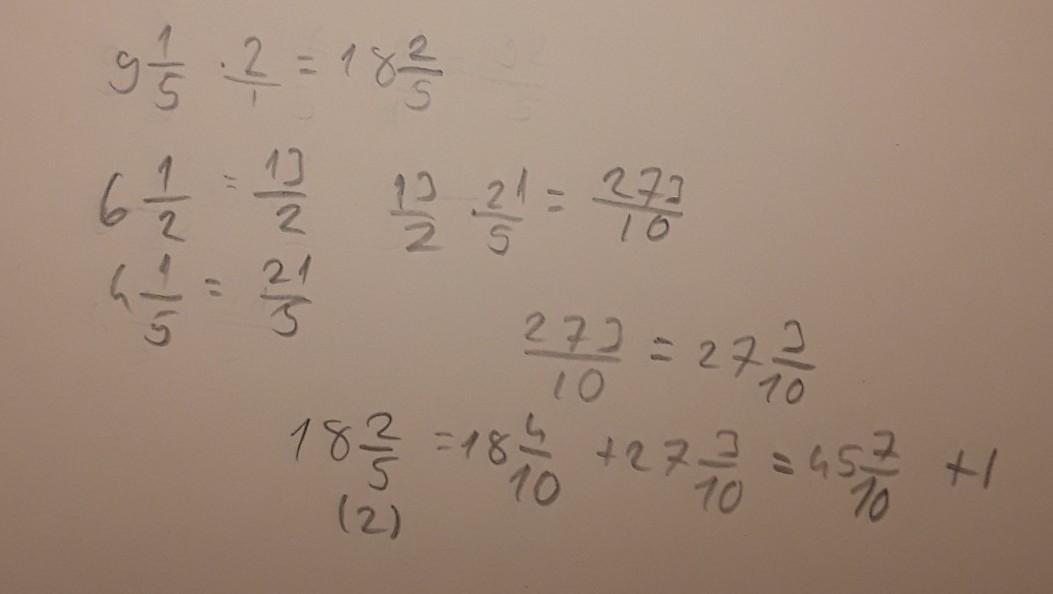 9 1/5 · 2/1 = 18 2/5
6 1/2 = 13/2 13/2 · 21/5 = 273/10
4 1/5 = 21/5
273/10 = 27 3/10
18 2/5 = 18 4/10 + 27 3/10 = 45 7/10 + 1
(2)